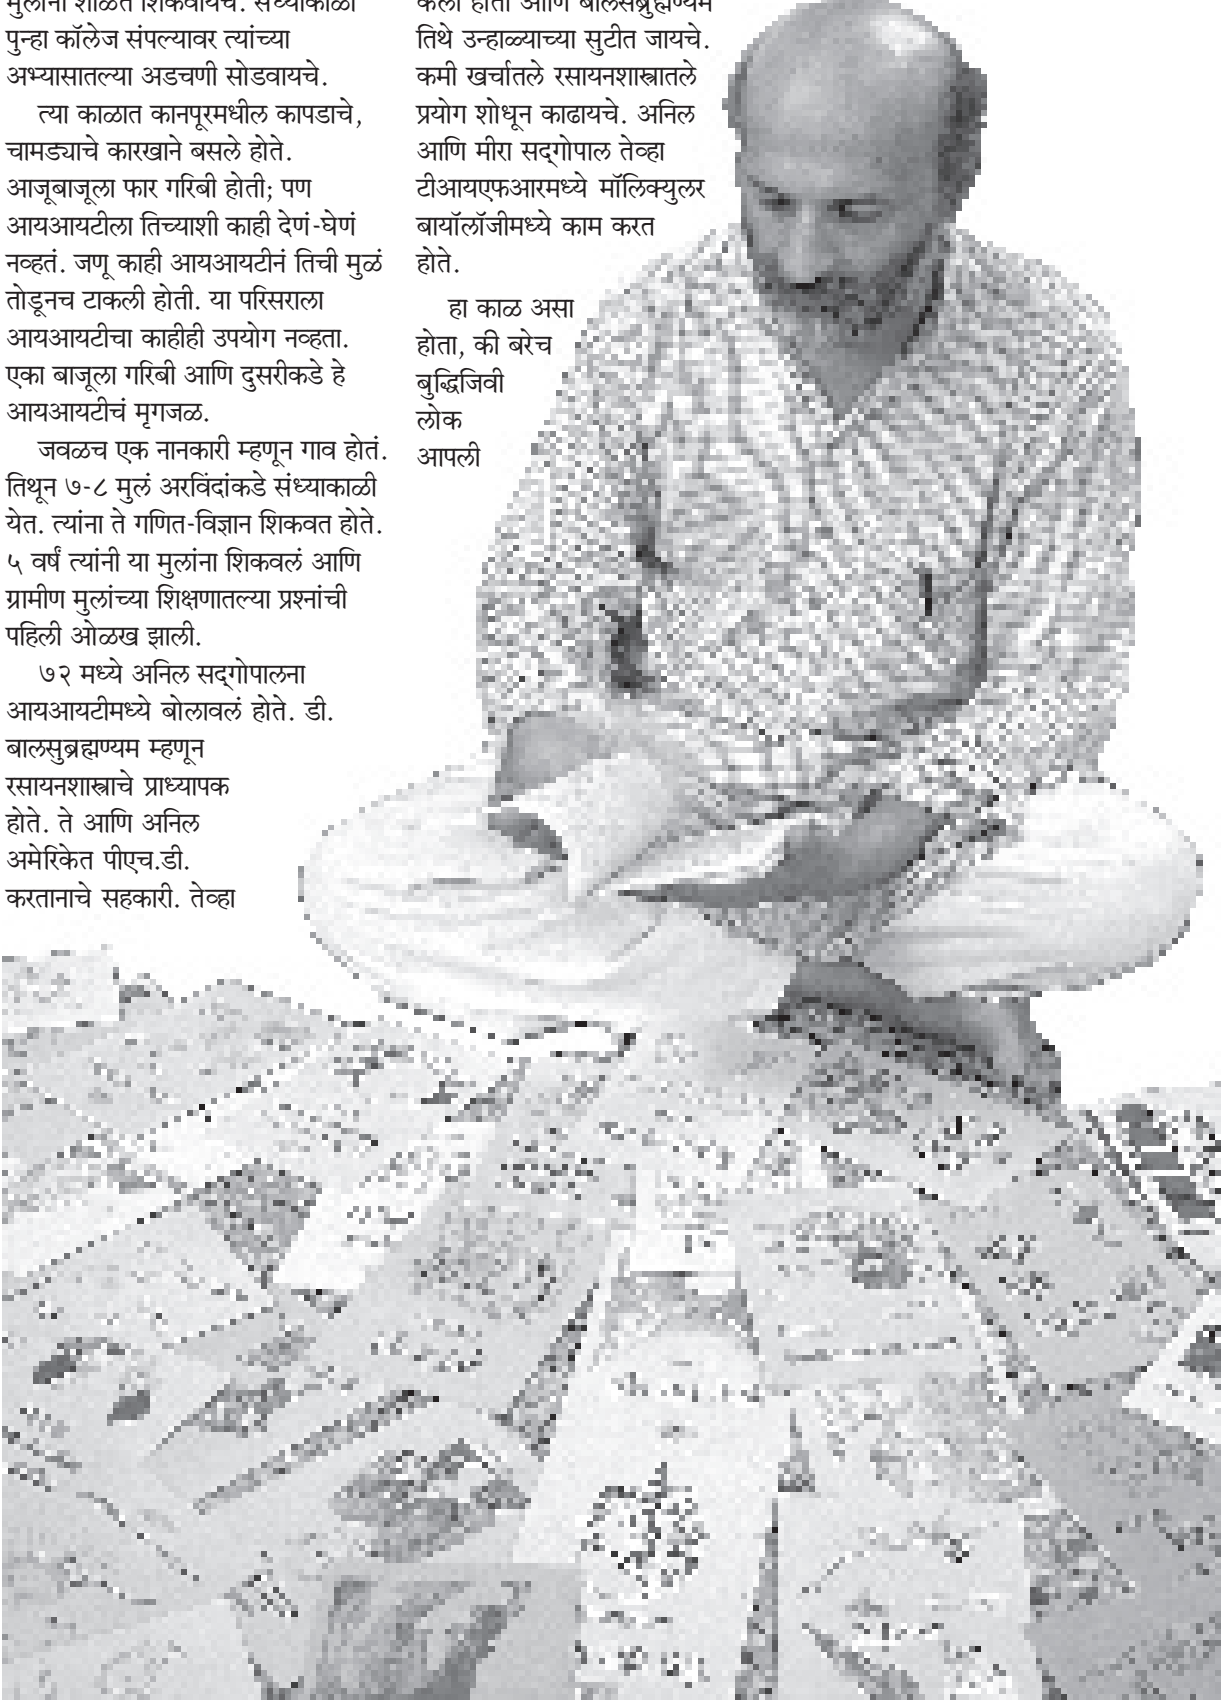 मुलांना शाळेत शिकवायचे. संध्याकाळी
पुन्हा कॉलेज संपल्यावर त्यांच्या
अभ्यासातल्या अडचणी सोडवायचे.
त्या काळात कानपूरमधील कापडाचे,
चामड्याचे कारखाने बसले होते.
आजूबाजूला फार गरिबी होती; पण
आयआयटीला तिच्याशी काही देणं-घेणं
नव्हतं. जणू काही आयआयटीनं तिची मुळं
तोडूनच टाकली होती. या परिसराला
आयआयटीचा काहीही उपयोग नव्हता.
एका बाजूला गरिबी आणि दुसरीकडे हे
आयआयटीचं मृगजळ.
जवळच एक नानकारी म्हणून गाव होतं.
तिथून ७-८ मुलं अरविंदांकडे संध्याकाळी
येत. त्यांना ते गणित-विज्ञान शिकवत होते.
५ वर्षं त्यांनी या मुलांना शिकवलं आणि
ग्रामीण मुलांच्या शिक्षणातल्या प्रश्नांची
पहिली ओळख झाली.
७२ मध्ये अनिल सद्‌गोपालना
आयआयटीमध्ये बोलावलं होते. डी.
बालसुब्रह्मण्यम म्हणून
रसायनशास्त्राचे प्राध्यापक
होते. ते आणि अनिल
अमेरिकेत पीएच.डी.
करतानाचे सहकारी. तेव्हा
केला होता आणि बालसुब्रह्मण्यम
तिथे उन्हाळ्याच्या सुटीत जायचे.
कमी खर्चातले रसायनशास्त्रातले
प्रयोग शोधून काढायचे. अनिल
आणि मीरा सद्‌गोपाल तेव्हा
टीआयएफआरमध्ये मॉलिक्युलर
बायॉलॉजीमध्ये काम करत
होते.
हा काळ असा
होता, की बरेच
बुद्धिजिवी
लोक
आपली